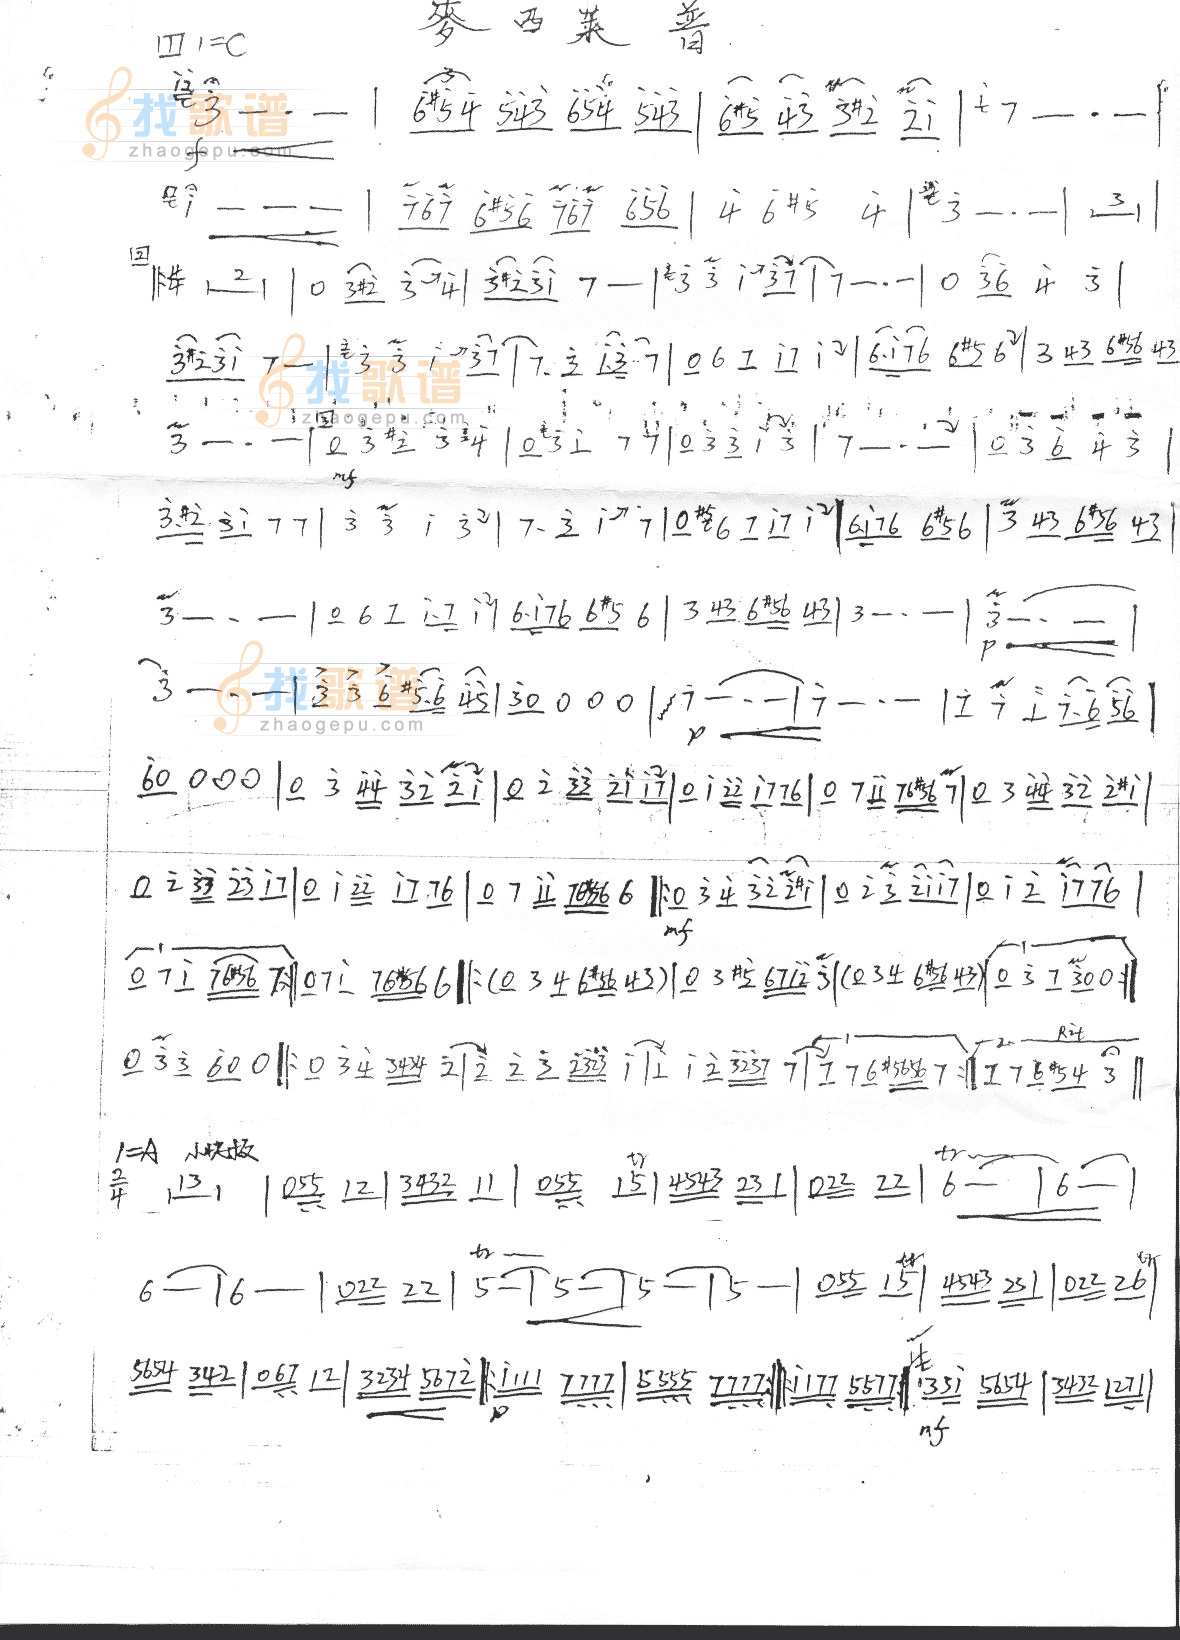 麥西萊普
皿 1=C
找歌谱
zhaogepu.com
3 — · — | 6#54 543 654 543 | 6#5 43 3#2 21 | 7 — · — |
f
1 — — — | 767 6#56 767 656 | 4 6 #5 4 | 3 — · — | 3 |
2 | 0 3#2 3 4 | 3#231 7 — | 3 3 1 37 | 7 — · — | 0 36 4 3 |
3#231 7 — | 3 3 1 37 | 7. 3 1.3 7 | 0 6 7 17 1 | 6.176 6#56 | 3 43 6#56 43
找歌谱
zhaogepu.com
3 — · — | 0 3 #2 3 4 | 0 3 1 7 7 | 0 3 3 1 3 | 7 — · — | 0 3 6 4 3 |
mf
3.#2 31 7 7 | 3 3 1 3 | 7. 3 1 7 | 0 6 7 17 1 | 6.176 6#56 | 3 43 6#56 43 |
3 — · — | 0 6 7 1.7 1 | 6.176 6#5 6 | 3 43 6#56 43 | 3 — · — | 3 — · — |
p
找歌谱
zhaogepu.com
3 — · — | 3 3 6 #5.6 45 | 30 0 0 0 | 7 — · — | 7 — · — | 1 7 1 7.6 56 |
p
60 0 0 0 | 0 3 44 32 21 | 0 2 33 21 17 | 0 1 22 1776 | 0 7 11 76#56 7 | 0 3 44 32 2#1 |
0 2 33 23 17 | 0 1 22 17 76 | 0 7 11 76#56 6 ‖: 0 3 4 32 2#1 | 0 2 3 21 17 | 0 1 2 1776 |
mf
1
0 7 1 76#56 7 :‖ 0 7 1 76#56 6 ‖: (0 3 4 6#56 43) | 0 3 #5 6712 3 | (0 3 4 6#56 43) | 0 3 7 300 :‖
1 2 Rit
0 3 3 60 0 ‖: 0 3 4 3434 2 | 2 2 3 2323 1 | 1 1 2 3237 7 | 7 7 6#5656 7 :‖ 7 7 6#54 3 ‖
1=A 小快板
2/4 13 | 055 12 | 3432 11 | 055 15 | 4543 231 | 022 22 | 6 — | 6 — |
tr tr
6 — | 6 — | 022 22 | 5 — | 5 — | 5 — | 5 — | 055 15 | 4543 231 | 022 26 |
tr tr tr
5654 342 | 067 12 | 3234 5672 ‖: 1111 7777 | 5555 7777 :‖: 1177 5577 :‖ 1331 5654 | 3432 1271 |
p mf